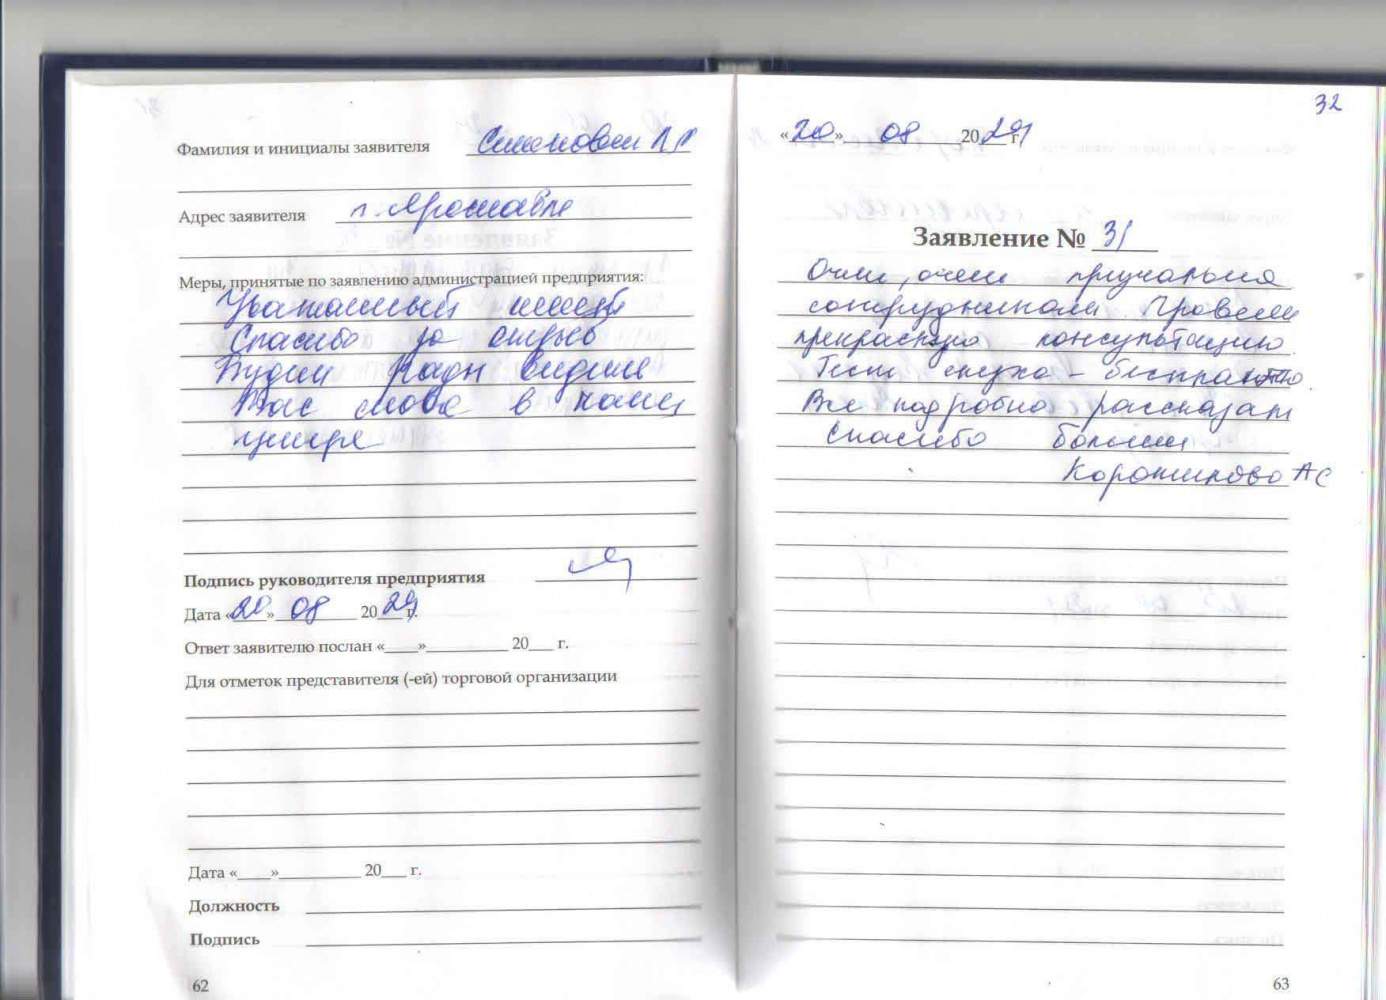 Фамилия и инициалы заявителя
Адрес заявителя г. Ярославль
Меры, принятые по заявлению администрацией предприятия:
Уважаемый
Спасибо за отзыв
Будем рады видеть
Вас снова в нашем
центре
Подпись руководителя предприятия
Дата «20» 08 2024 г.
Ответ заявителю послан «____»__________ 20___ г.
Для отметок представителя (-ей) торговой организации
Дата «____»__________ 20___ г.
Должность
Подпись
62
32
«20» 08 2024 г.
Заявление № 31
Очень, очень
сотрудниками. Провели
прекрасную консультацию.
Тест слуха - бесплатно.
Все подробно рассказали
Спасибо большое
АС
63